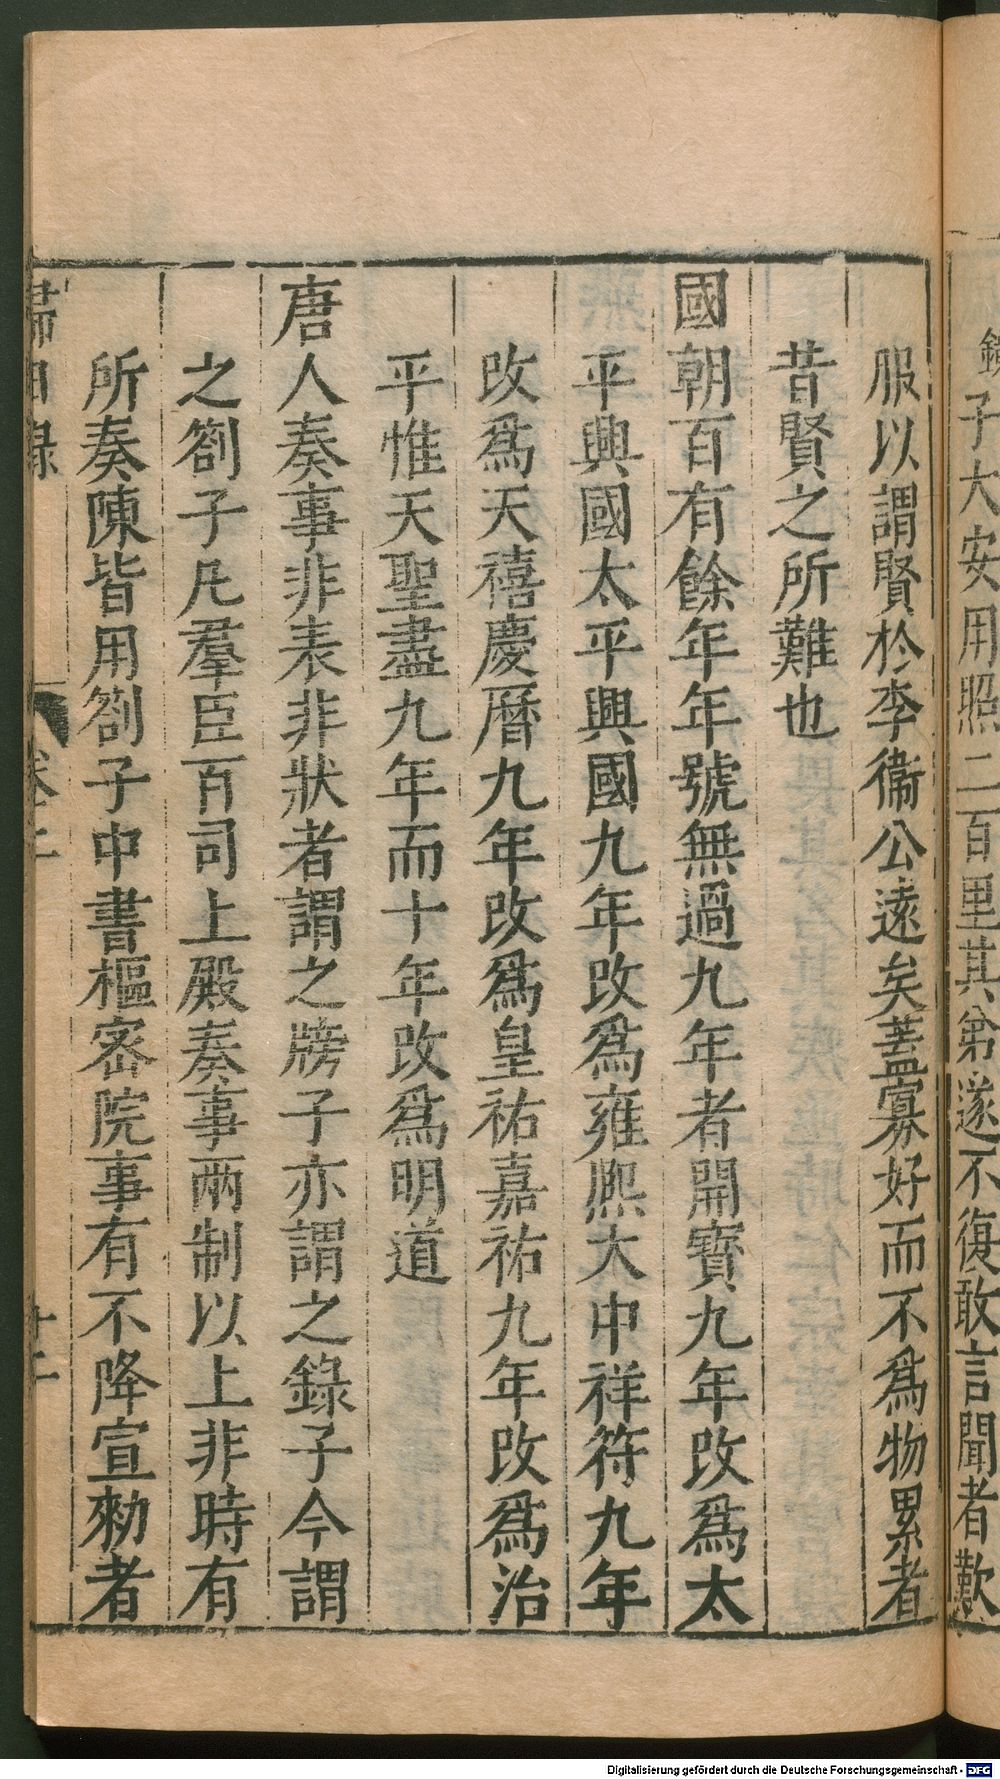 鏡子大安用照二百里其弟遂不復敢言聞者歎
服以謂賢於李衞公遠矣蓋寡好而不爲物累者
昔賢之所難也
國朝百有餘年年號無過九年者開寶九年改爲太
平興國太平興國九年改爲雍熈大中祥符九年
改爲天禧慶曆九年改爲皇祐嘉祐九年改爲治
平惟天聖盡九年而十年改爲明道
唐人奏事非表非狀者謂之牓子亦謂之錄子今謂
之劄子凡羣臣百司上殿奏事兩制以上非時有
所奏陳皆用劄子中書樞宻院事有不降宣勑者
歸田録
卷二
十二
Digitalisierung gefördert durch die Deutsche Forschungsgemeinschaft - DFG